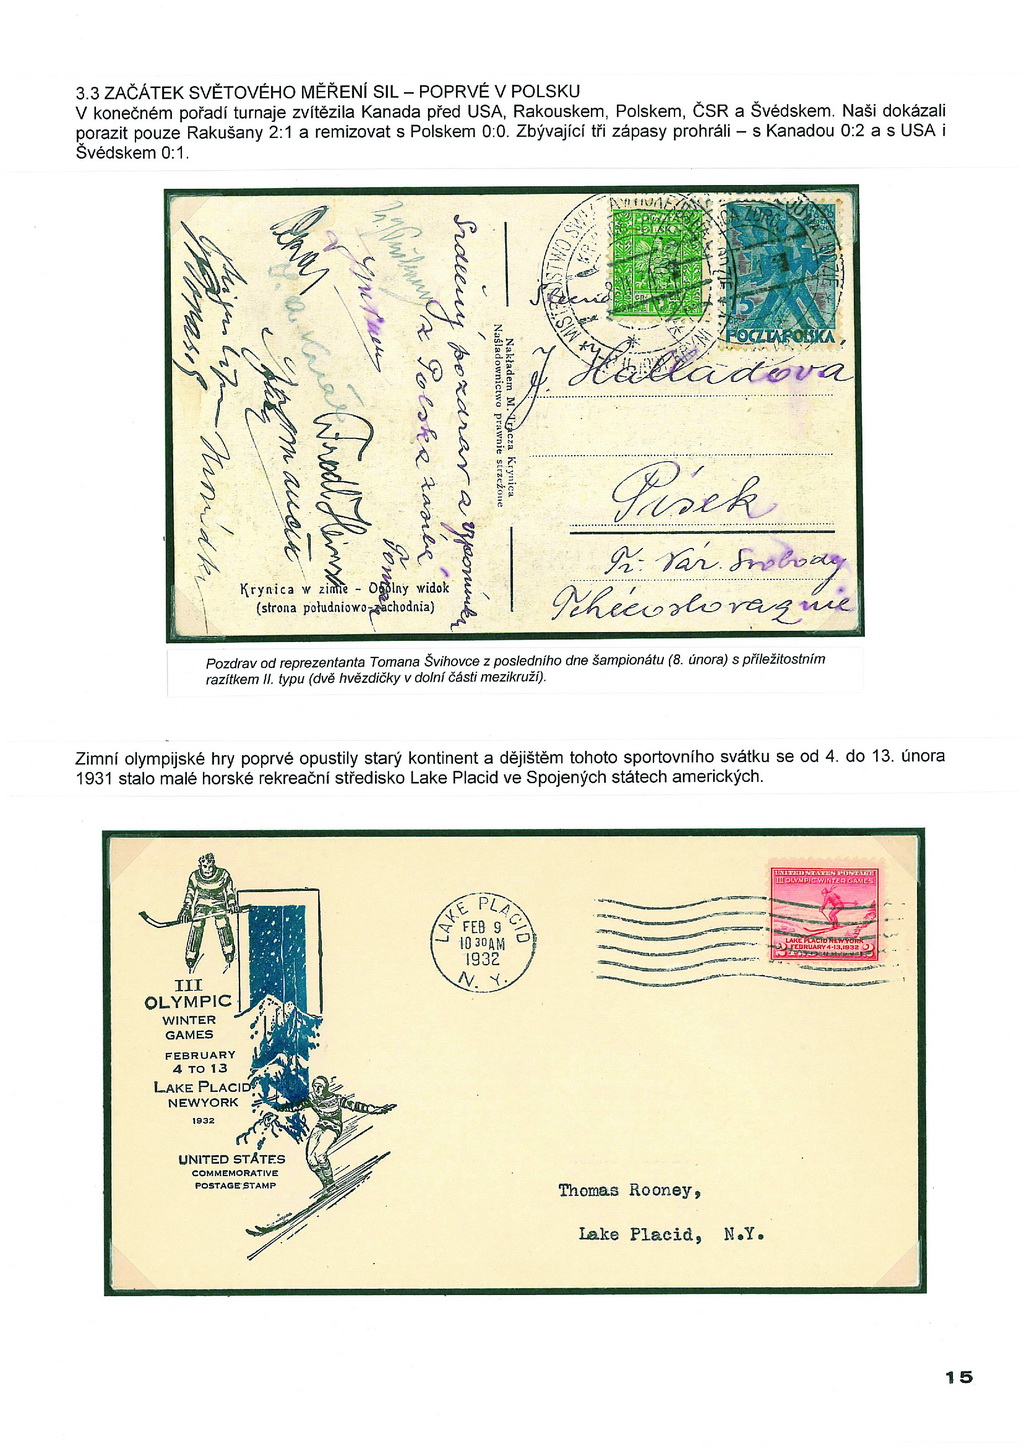 3.3 ZAČÁTEK SVĚTOVÉHO MĚŘENÍ SIL – POPRVÉ V POLSKU
V konečném pořadí turnaje zvítězila Kanada před USA, Rakouskem, Polskem, ČSR a Švédskem. Naši dokázali
porazit pouze Rakušany 2:1 a remizovat s Polskem 0:0. Zbývající tři zápasy prohráli – s Kanadou 0:2 a s USA i
Švédskem 0:1.
Srdečný pozdrav a vzpomínku
z Polska zasílá
Toman
Nakładem M. Tracza Krynica
Naśladownictwo prawnie strzeżone
POCZTA POLSKA
J. Halladová
Písek
Tř. Vár. Svobody
Tchécoslovaquie
Krynica w zimie – Ogólny widok
(strona południowo-zachodnia)
Pozdrav od reprezentanta Tomana Švihovce z posledního dne šampionátu (8. února) s příležitostním
razítkem II. typu (dvě hvězdičky v dolní části mezikruží).
Zimní olympijské hry poprvé opustily starý kontinent a dějištěm tohoto sportovního svátku se od 4. do 13. února
1931 stalo malé horské rekreační středisko Lake Placid ve Spojených státech amerických.
III
OLYMPIC
WINTER
GAMES
FEBRUARY
4 TO 13
LAKE PLACID
NEWYORK
1932
UNITED STATES
COMMEMORATIVE
POSTAGE STAMP
LAKE PLACID
FEB 9
10 30 AM
1932
N. Y.
UNITED STATES POSTAGE
III OLYMPIC WINTER GAMES
LAKE PLACID NEW YORK
FEBRUARY 4-13, 1932
Thomas Rooney,
Lake Placid, N.Y.
15